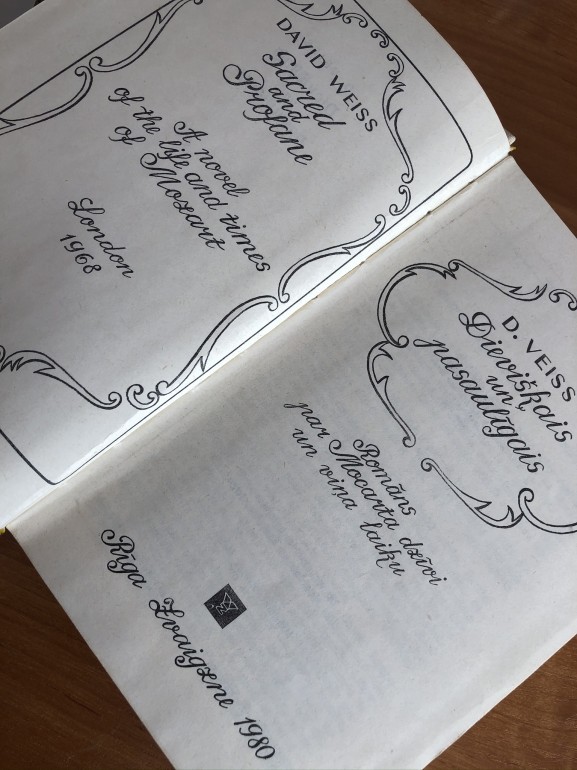 DAVID WEISS
Sacred
and
Profane
A novel
of the life and times
of Mozart
London
1968
D. VEISS
Dievišķais
un
pasaulīgais
Romāns
par Mocarta dzīvi
un viņa laiku
Rīga Zvaigzne 1980